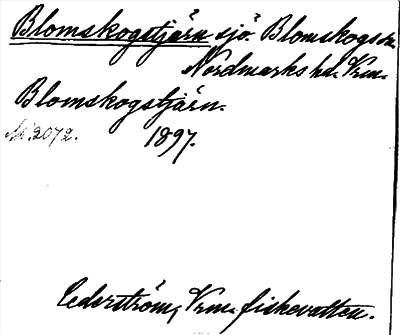 Blomskogstjärn sjö. Blomskogs sn.
Nordmarks hd. Vrm.
Blomskogstjärn.
№ 2072. 1897.
Cederström, Vrm. fiskevatten.